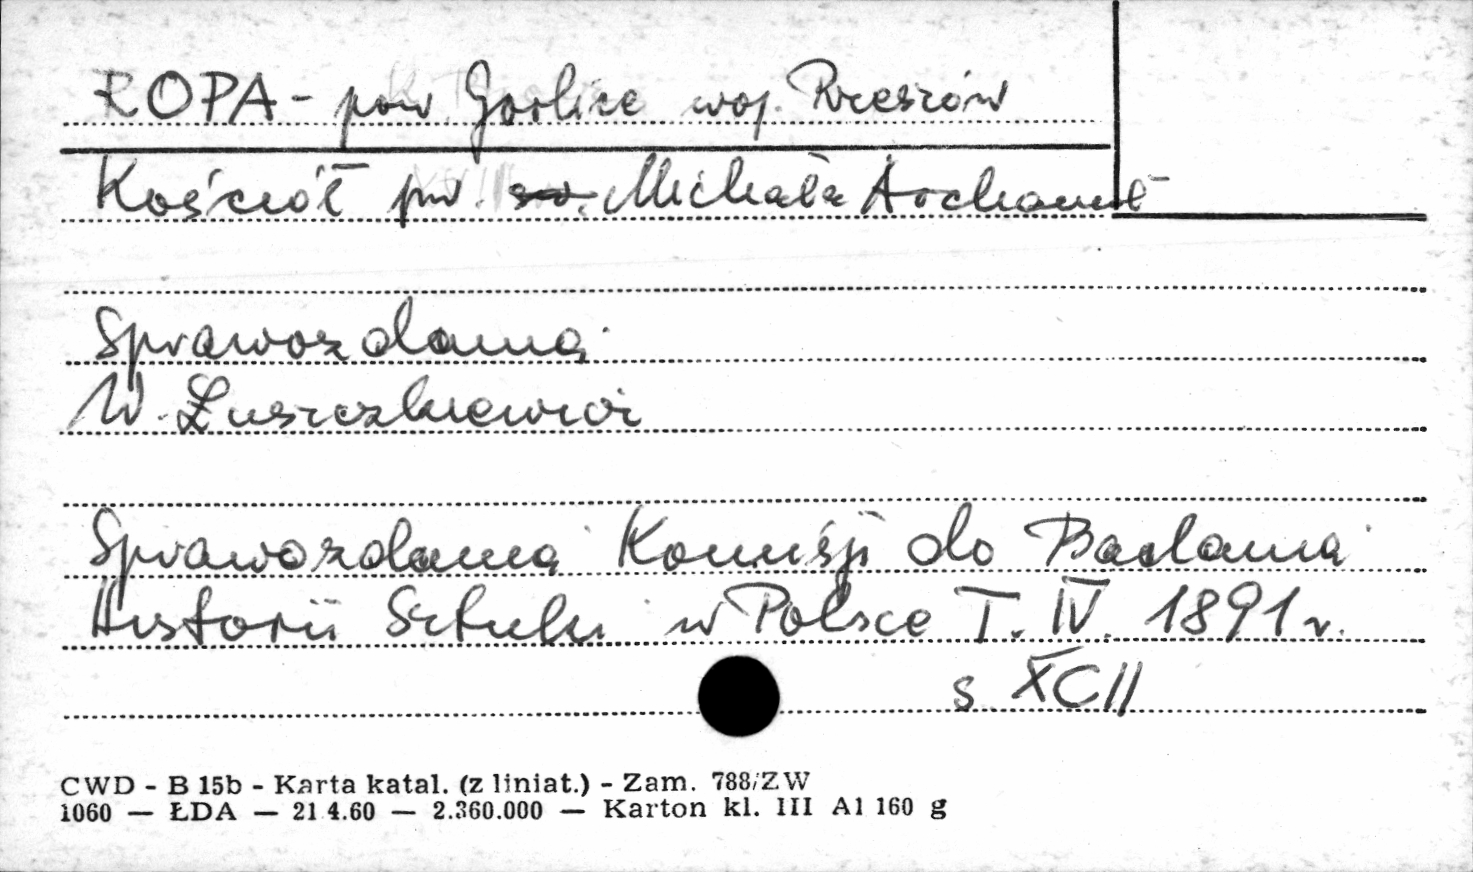 ROPA - pow Gorlice woj. Rzeszów
Kościół pw. św. Michała Archanioł
Sprawozdania
W. Łuszczkiewicz
Sprawozdania Komisji do Badania
Historii Sztuki w Polsce T. IV. 1891 r.
s XCII
CWD - B 15b - Karta katal. (z liniat.) - Zam. 788/ZW
1060 — ŁDA — 21.4.60 — 2.360.000 — Karton kl. III A1 160 g